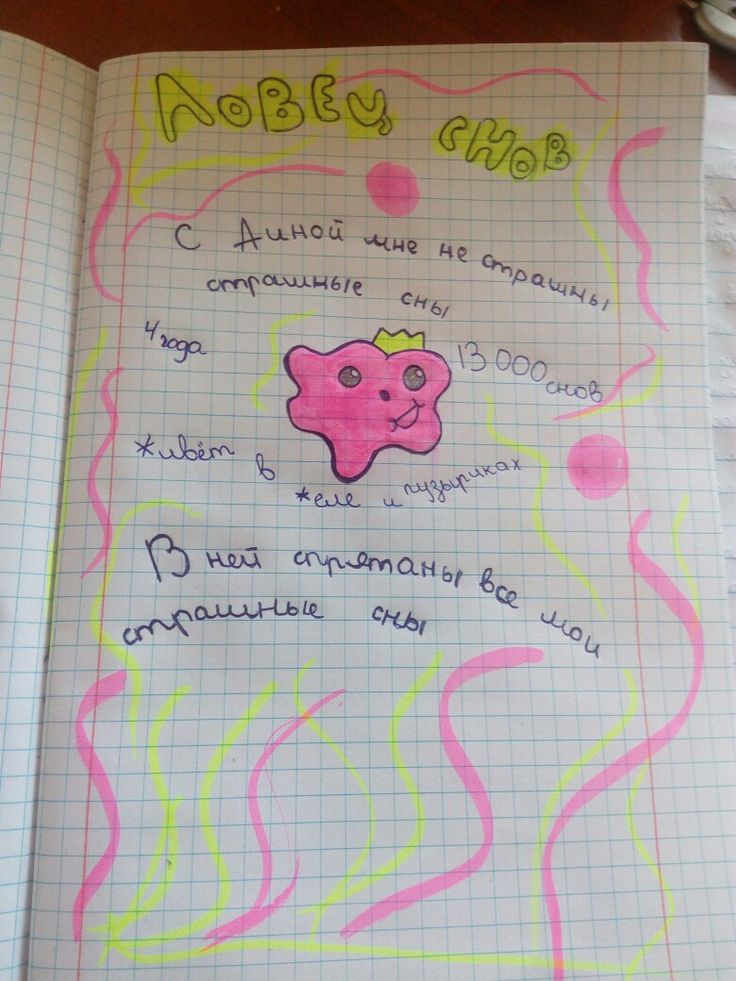 ЛОВЕЦ СНОВ
С Диной мне не страшны
страшные сны
4 года
13 000 снов
живёт в желе и пузыриках
В ней спрятаны все мои
страшные сны